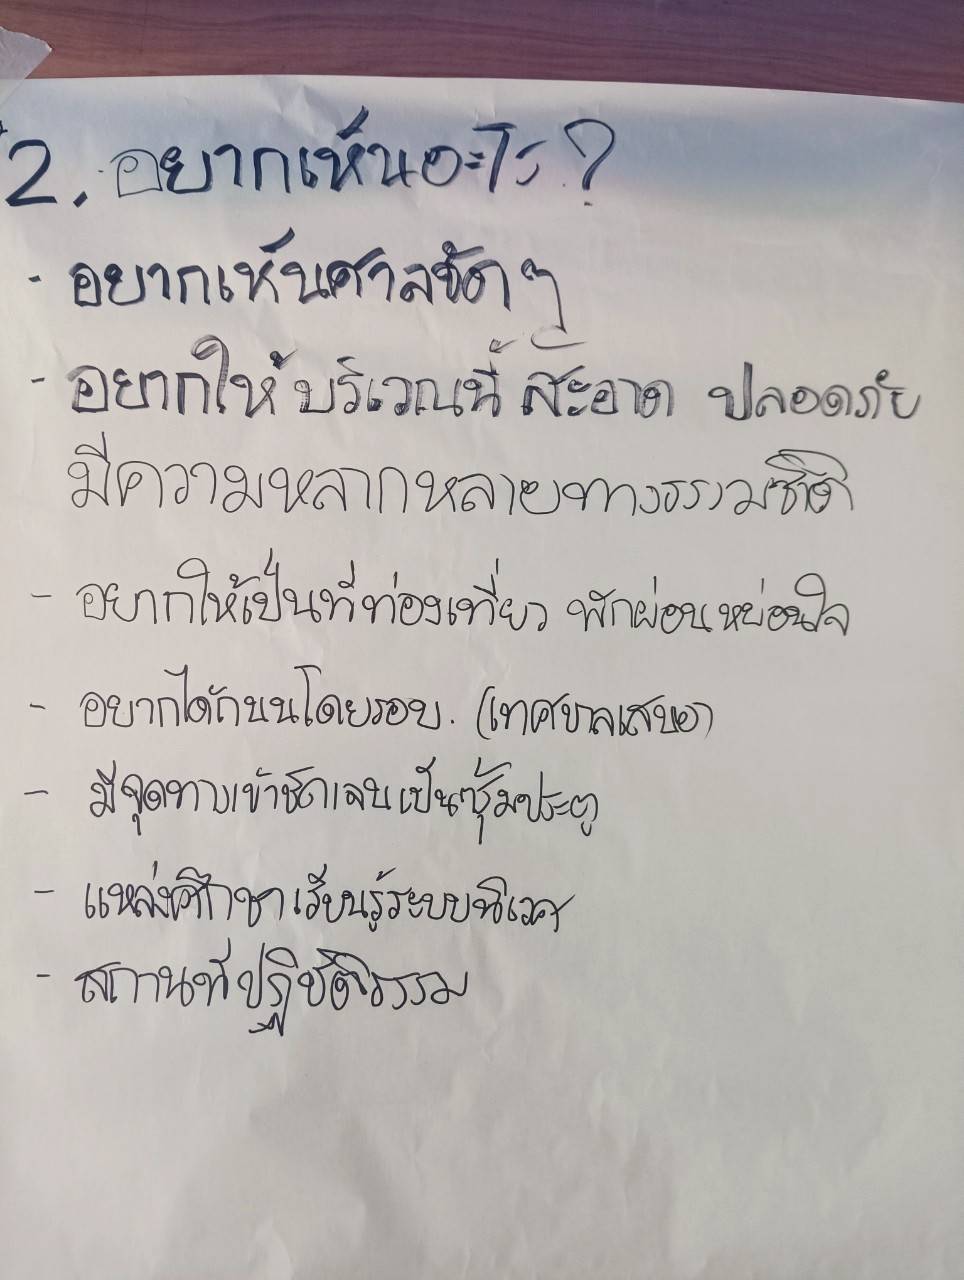 2. อยากเห็นอะไร ?
- อยากเห็นศาลชัด ๆ
- อยากให้ บริเวณนี้ สะอาด ปลอดภัย
มีความหลากหลายทางธรรมชาติ
- อยากให้เป็นที่ท่องเที่ยว พักผ่อนหย่อนใจ
- อยากได้ถนนโดยรอบ. (เทศบาลเสนอ)
- มีจุดทางเข้าชัดเจนเป็นซุ้มประตู
- แหล่งศึกษาเรียนรู้ระบบนิเวศ
- สถานที่ปฏิบัติธรรม